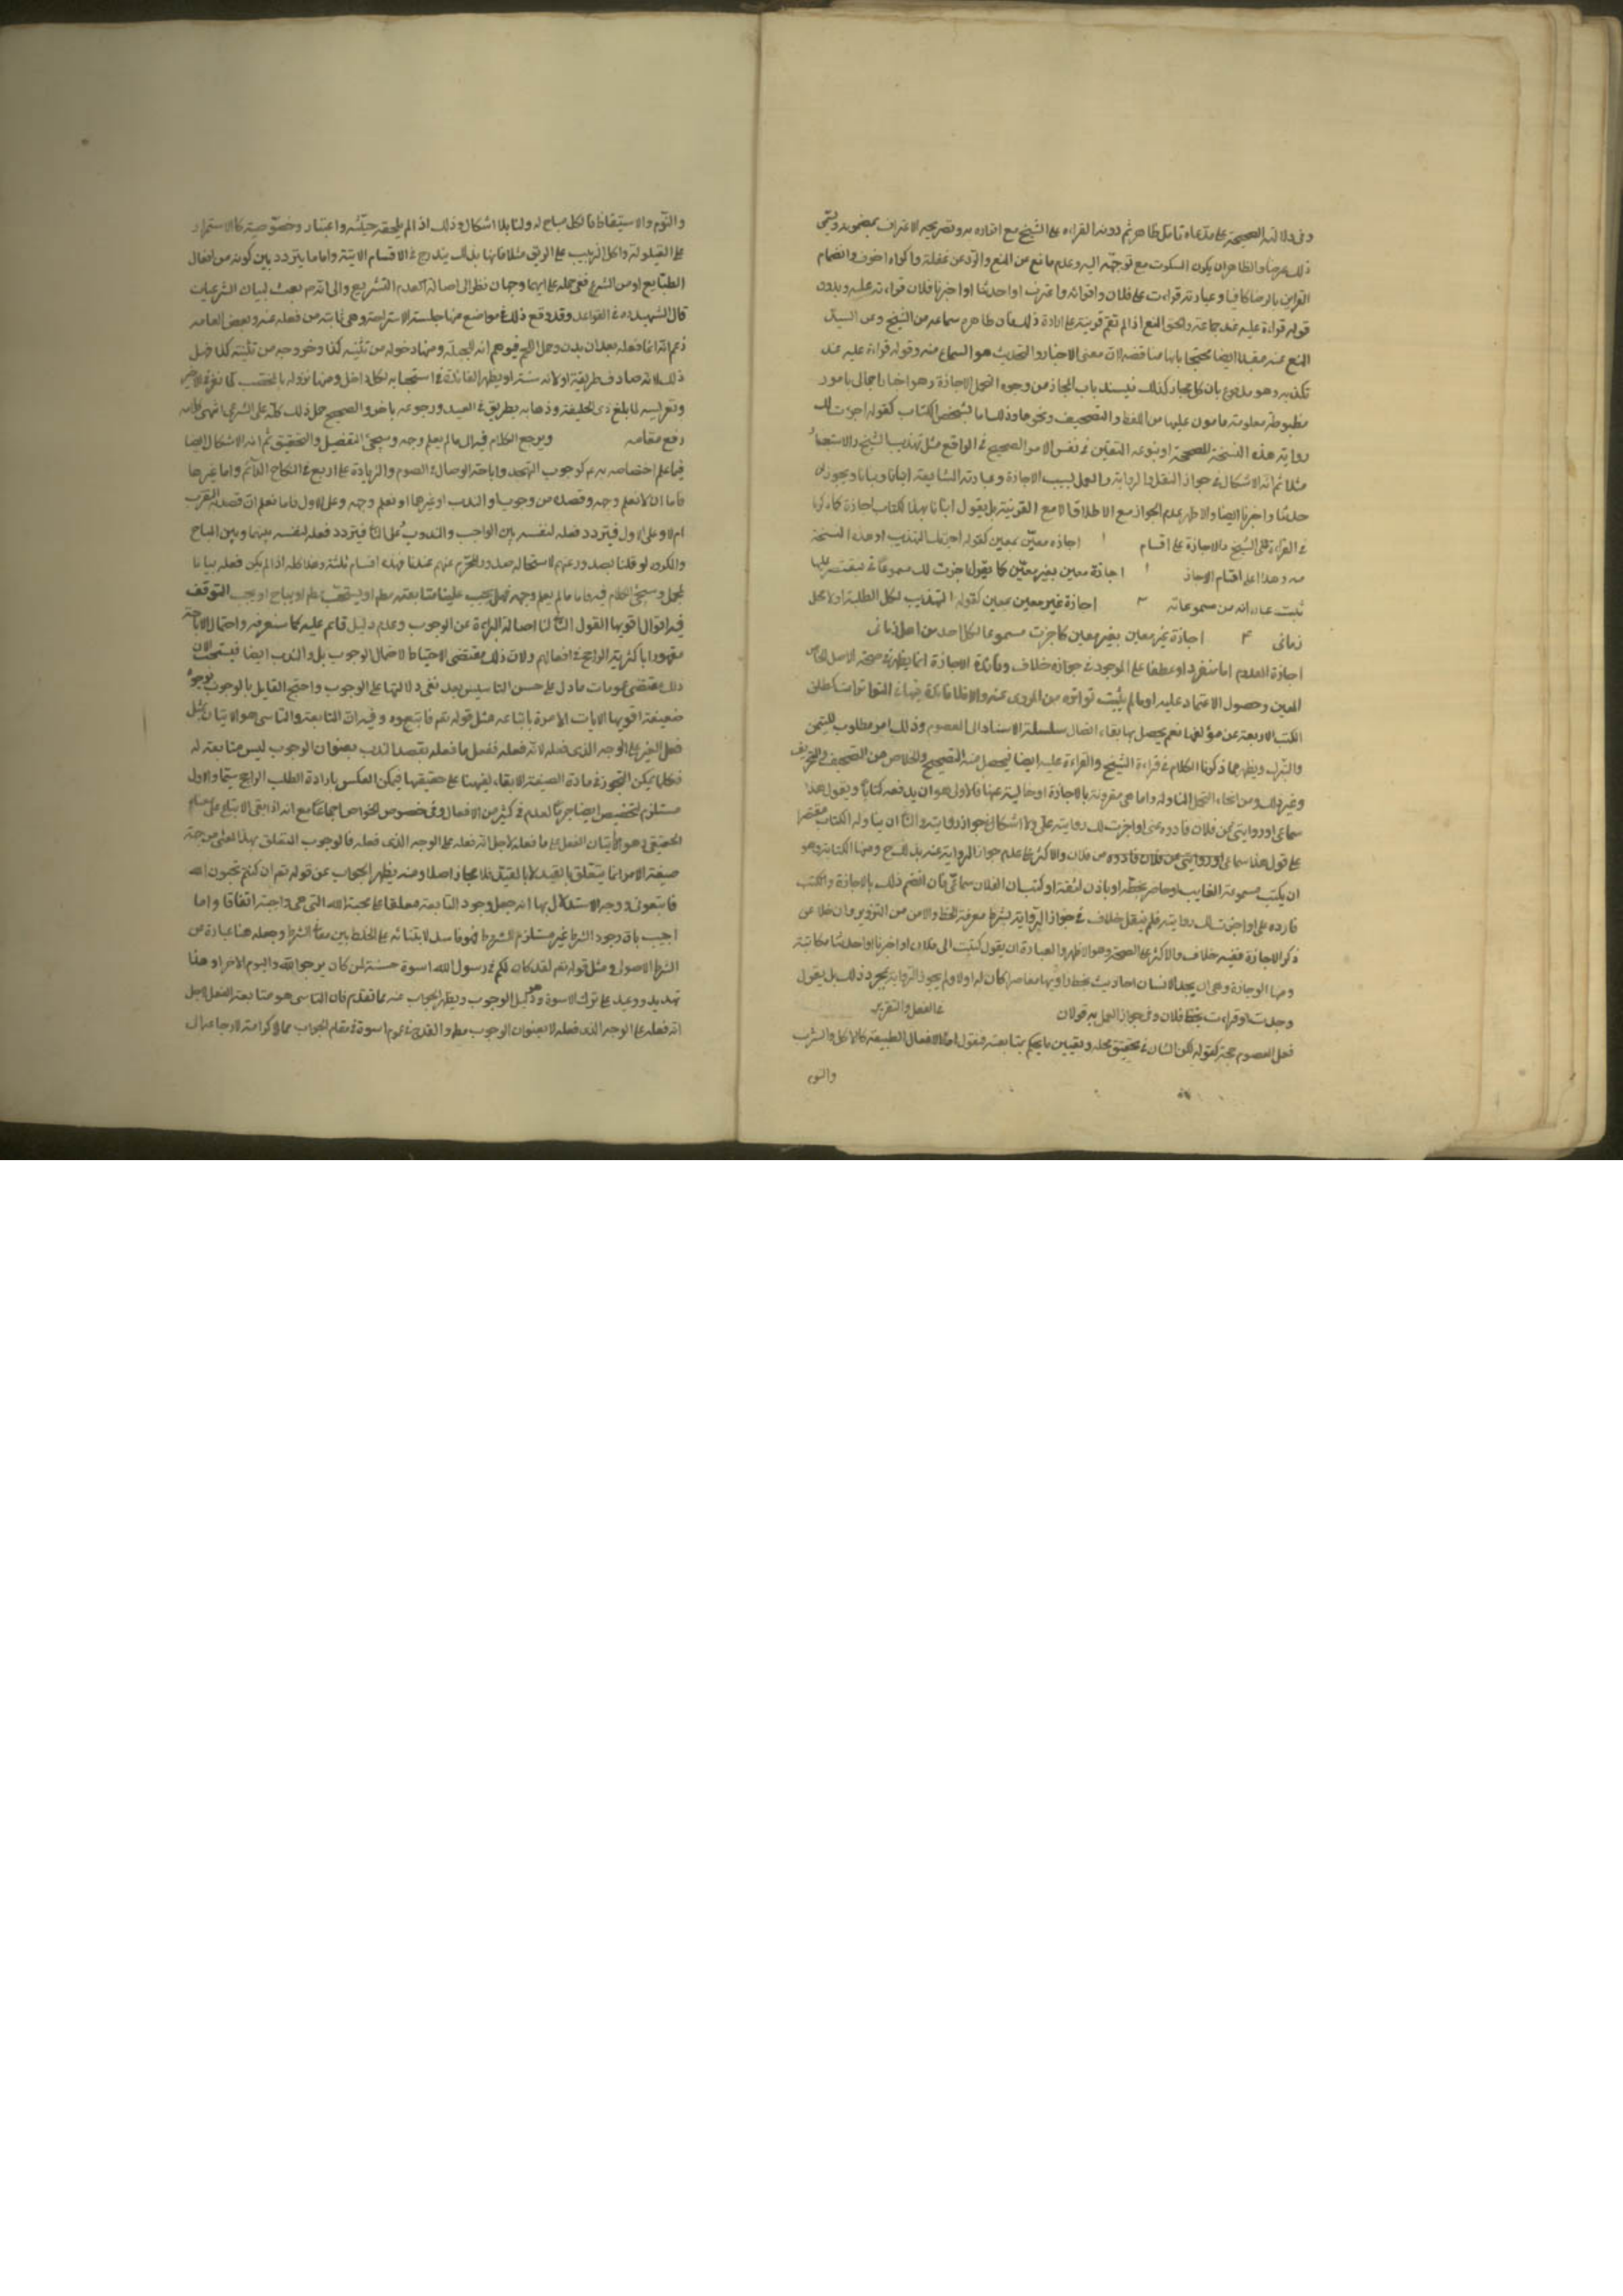 وفى دلالته الصحيحة على مدعاه تامل ظاهر ثم دونه القراءة على الشيخ مع اقراره به وتصريحه الاعتراف بمضمونه ويسمى
ذلك عرضا والظاهر ان يكون السكوت مع توجهه اليه وعدم مانع من المنع والرد عن غفلة او اكراه او خوف وانضمام
القراين بالرضا كافيا وعبارته قرات على فلان واقر به واعترف او حدثنا او اخبرنا فلان قراءة عليه وبدون
قوله قراءة عليه عند جماعة والحق المنع اذا لم تقم قرينة على ارادة ذلك فان ظاهره سماعه من الشيخ وعن السيد
المنع عنه مقيدا ايضا محتجا بانها مناقضة لان معنى الاخبار والتحديث هو السماع منه وقوله قراءة عليه
تكذبه وهو مدفوع بان كل مجاز كذلك فينسد باب المجاز من وجوه التحمل الاجازة وهو اخبار اجمالى بامور
مضبوطة معلومة مامون عليها من الغلط والتصحيف ونحوها وذلك اما بشخص الكتاب كقوله اجزت لك
رواية هذه النسخة المصححة او بنوعه المتعين فى نفس الامر الصحيح فى الواقع مثل تهذيب الشيخ والاستبصار
مثلا ثم انه لا اشكال فى جواز النقل والرواية والعمل بسبب الاجازة وعبارته الشايعة انبانا ونبانا ويجوز
حدثنا واخبرنا ايضا والاظهر عدم الجواز مع الاطلاق الا مع القرينة بل يقول انبانا بهذا الكتاب اجازة كما ذكرنا
فى القراءة على الشيخ والاجازة على اقسام ١ اجازة معين بمعين كقوله اجزتك التهذيب او هذه النسخة
منه وهذا اعلى اقسام الاجازة اجازة معين بغير معين كما يقول اجزت لك مسموعاتى فيقتصر على ما
ثبت عنده انه من مسموعاته ٣ اجازة غير معين بمعين كقوله التهذيب لكل الطلبة او لاهل
زمانى ۴ اجازة غير معين بغير معين كاجزت مسموعاتى لكل احد من اهل زمانى
اجازة المعدوم اما منفردا او عطفا على الموجود فى جوازه خلاف وفائدة الاجازة انما يظهر فى صحة الاصل الخاص
المعين وحصول الاعتماد عليه او ما لم يثبت تواتره من المروى عنه والا فلا فائدة فيها فى المتواترات كمطلق
الكتب الاربعة عن مؤلفها نعم يحصل بها بقاء اتصال سلسلة الاسناد الى المعصوم وذلك امر مطلوب للتيمن
والتبرك ويظهر مما ذكرنا الكلام فى قراءة الشيخ والقراءة عليه ايضا فيحصل منه التصحيح والخلاص من التصحيف والتحريف
وغير ذلك ومن انحاء التحمل المناولة واما هى مقرونة بالاجازة او خالية عنها فالاولى هو ان يدفعه كتابا ويقول هذا
سماعى او روايتى عن فلان فاروه عنى او اجزت لك روايته عنى ولا اشكال فى جواز روايته والثانى ان يناوله الكتاب مقتصرا
على قول هذا سماعى او روايتى من فلان والاكثر على عدم جواز الرواية عنه بذلك ومنها الكتابة وهو
ان يكتب مسموعه لغايب او حاضر بخطه او باذن لثقة او كتب ان الفلان سماعى فان انضم ذلك بالاجازة وكتب
فاروه عنى او اجزت لك روايته فلم ينقل خلاف فى جواز الرواية بشرط معرفة الخط والامن من التزوير وان خلا عن
ذكر الاجازة ففيه خلاف والاكثر على الصحة وهو الاظهر والعبارة ان يقول كتبت الى فلان او اخبرنا او حدثنا مكاتبة
ومنها الوجادة وهى ان يجد الانسان احاديث بخط راويها معاصرا كان له او لا ولم يجوز الرواية بمجرد ذلك بل يقول
وجدت او قرات بخط فلان وفى جواز العمل به قولان فى الفعل والتقرير
فعل المعصوم حجة كقوله لكن الشان فى تحقيق محله وتعيين ما يحكم بمتابعته فنقول اما الافعال الطبيعية كالاكل والشرب
والنوم
والنوم والاستيقاظ فالكل مباح له ولنا بلا اشكال وذلك اذا لم يلحقه حيثية واعتبار وخصوصية كالاستمرار
على القيلولة واكل الزبيب على الريق مثلا فانها بذلك يندرج فى الاقسام الاتية واما ما يتردد بين كونه من افعال
الطبايع او من الشرع ففى حمله على ايهما وجهان نظرا الى اصالة العدم التشريع والى انه بعث لبيان الشرعيات
قال الشهيد ره فى القواعد وقد وقع ذلك فى مواضع منها جلسة الاستراحة وهى ثابتة من فعله وبعض العامة
زعم انه انما فعله بعد ان بدن وحمل اللحم فتوهم انه للجبلة ومنها دخوله من ثنية كذا وخروجه من ثنية كذا فهل
ذلك لانه صادف طريقه او لانه سنة او يظهر الفائدة فى استحبابه لكل داخل ومنها نزوله بالمحصب
وتعريسه لما بلغ ذى الحليفة وذهابه بطريق فى العيد ورجوعه باخر والصحيح حمل ذلك كله على الشرعى انتهى كلامه
رفع مقامه ويرجع الكلام فيه الى ما لم يعلم وجهه وسيجئ التفصيل والتحقيق ثم انه لا اشكال ايضا
فيما علم اختصاصه به كوجوب التهجد واباحة الوصال فى الصوم والزيادة على اربع فى النكاح الدائم واما غيرها
فاما ان لا نعلم وجهه وقصده من وجوب او الندب او غيرهما او نعلم وجهه وعلى الاول فاما نعلم ان قصد به التقرب
ام لا وعلى الاول فيتردد فعله لنفسه بين الواجب والمندوب وعلى الثانى فيتردد فعله لنفسه بينهما وبين المباح
والمكروه لو قلنا بصدوره عنهم لاستحالة صدور المحرم عنهم عندنا فهذه اقسام ثلثة وهذا كله اذا لم يكن فعله بيانا
لمجمل وسيجئ الكلام فيه فاما ما لم يعلم وجهه فهل يجب علينا متابعته مطلقا او يستحب مطلقا او يباح او يجب التوقف
فيه اقوال اقويها القول الثانى لنا اصالة البراءة عن الوجوب وعدم دليل قائم عليه كما ستعرفه واحتمال الاباحة
مقهور باكثرية الراجح فى افعالهم ولان ذلك مقتضى الاحتياط لاحتمال الوجوب بل والندب ايضا فيستحب لان
ذلك مقتضى عمومات ما دل على حسن التاسى بعد نفى دلالتها على الوجوب واحتج القايل بالوجوب بوجوه
ضعيفة اقويها الايات الامرة باتباعه مثل قوله تعالى فاتبعوه وفيه ان المتابعة والتاسى هو الاتيان بمثل
فعل الغير على الوجه الذى فعله لانه فعله ففعل ما فعله بقصد الندب بعنوان الوجوب ليس متابعة له
فكما يمكن التجوز فى مادة الصيغة لابقاء الهيئة على حقيقتها فيمكن العكس بارادة الطلب الراجح سيما والاول
مستلزم للتخصيص ايضا لعدم فى كثير من الافعال وفى خصوص الخواص اجماعا مع انه اذا بقى الاتباع على معناه
الحقيقى وهو الاتيان الفعل على ما فعله لاجل انه فعله على الوجه الذى فعله فالوجوب المتعلق بهذا المعنى من جهة
صيغة الامر انما يتعلق بالقيد لا بالمقيد فلا مجاز اصلا ومنه يظهر الجواب عن قوله تعالى ان كنتم تحبون الله
فاتبعونى ووجه الاستدلال بها انه جعل وجود المتابعة معلقا على محبة الله التى هى واجبة اتفاقا واما
اجيب بان وجود الشرط غير مستلزم للمشروط فهو فاسد لابتنائه على الخلط بين معانى الشرط وجعله هنا عبارة من
الشرط الاصولى ومثل قوله تعالى لقد كان لكم فى رسول الله اسوة حسنة لمن كان يرجوا الله واليوم الاخر او هذا
تهديد ووعيد على ترك الاسوة وهو دليل الوجوب ويظهر الجواب عنه مما تقدم فان التاسى هو متابعة الفعل لاجل
انه فعله على الوجه الذى فعله لا بعنوان الوجوب مطلقا والقدح فى عموم اسوة فى مقام الجواب مما لا كرامة فيه